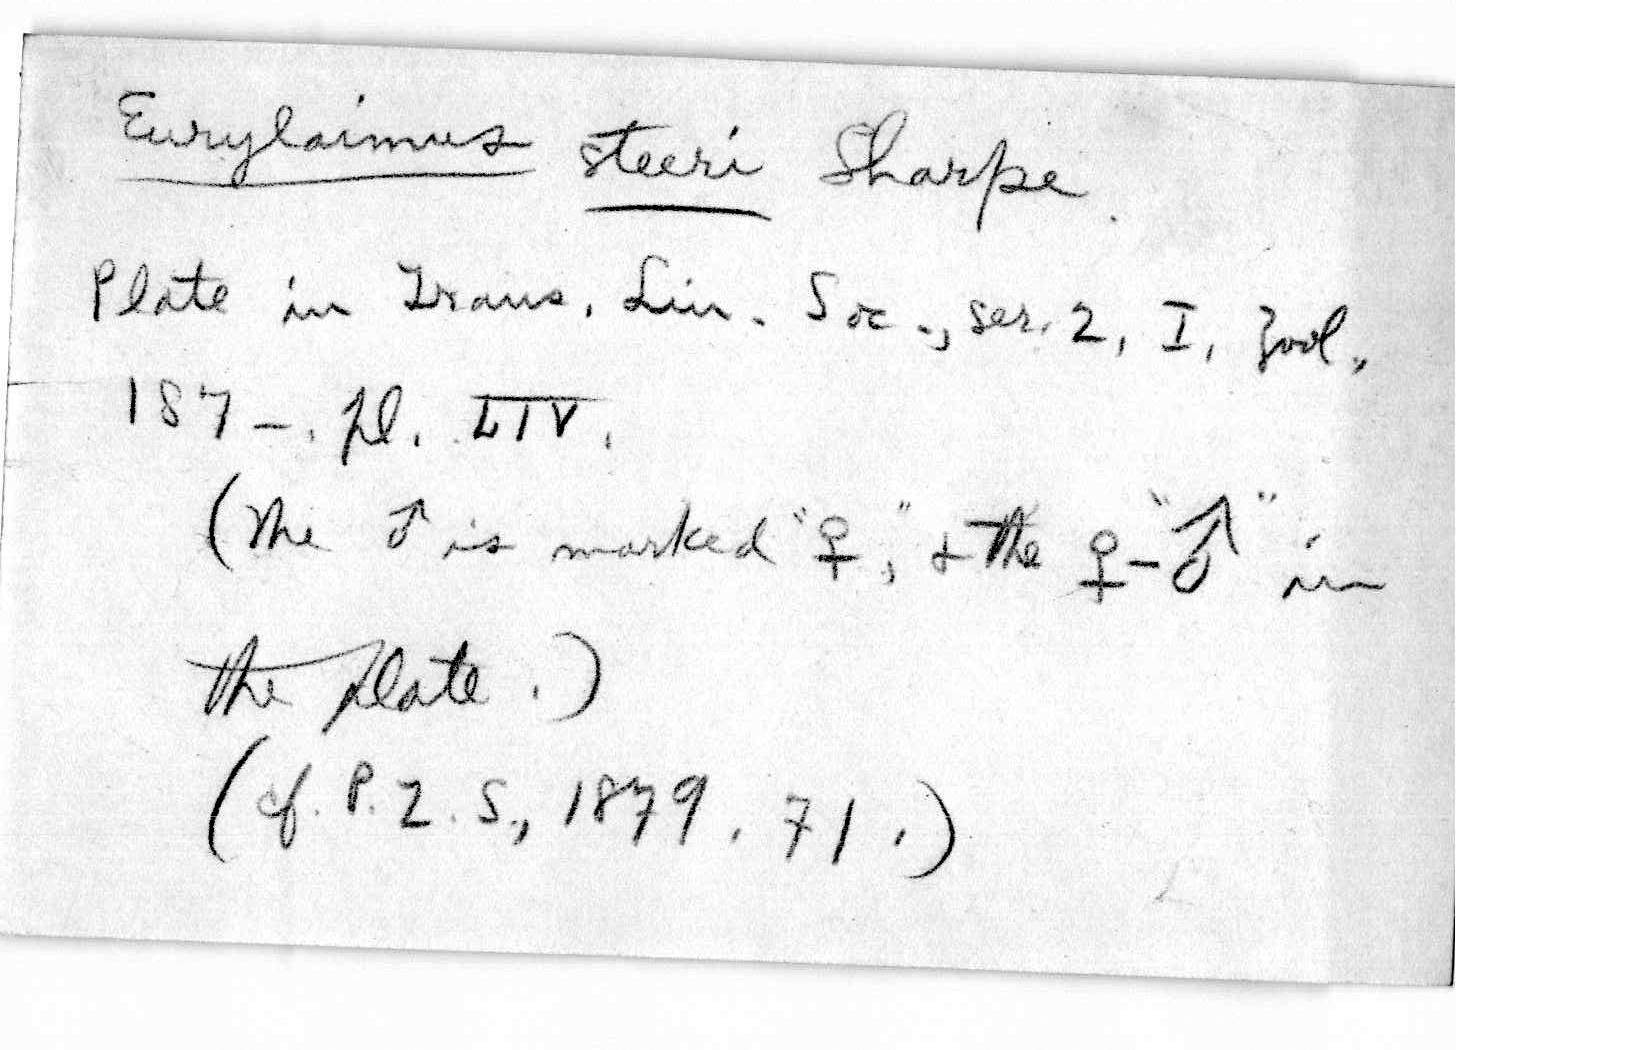 Eurylaimus steeri Sharpe.
Plate in Trans. Lin. Soc., ser. 2, I, Zool.,
187-. pl. LIV.
(The ♂ is marked "♀," & the ♀-"♂" in
the plate.)
(cf. P.Z.S., 1879, 71.)